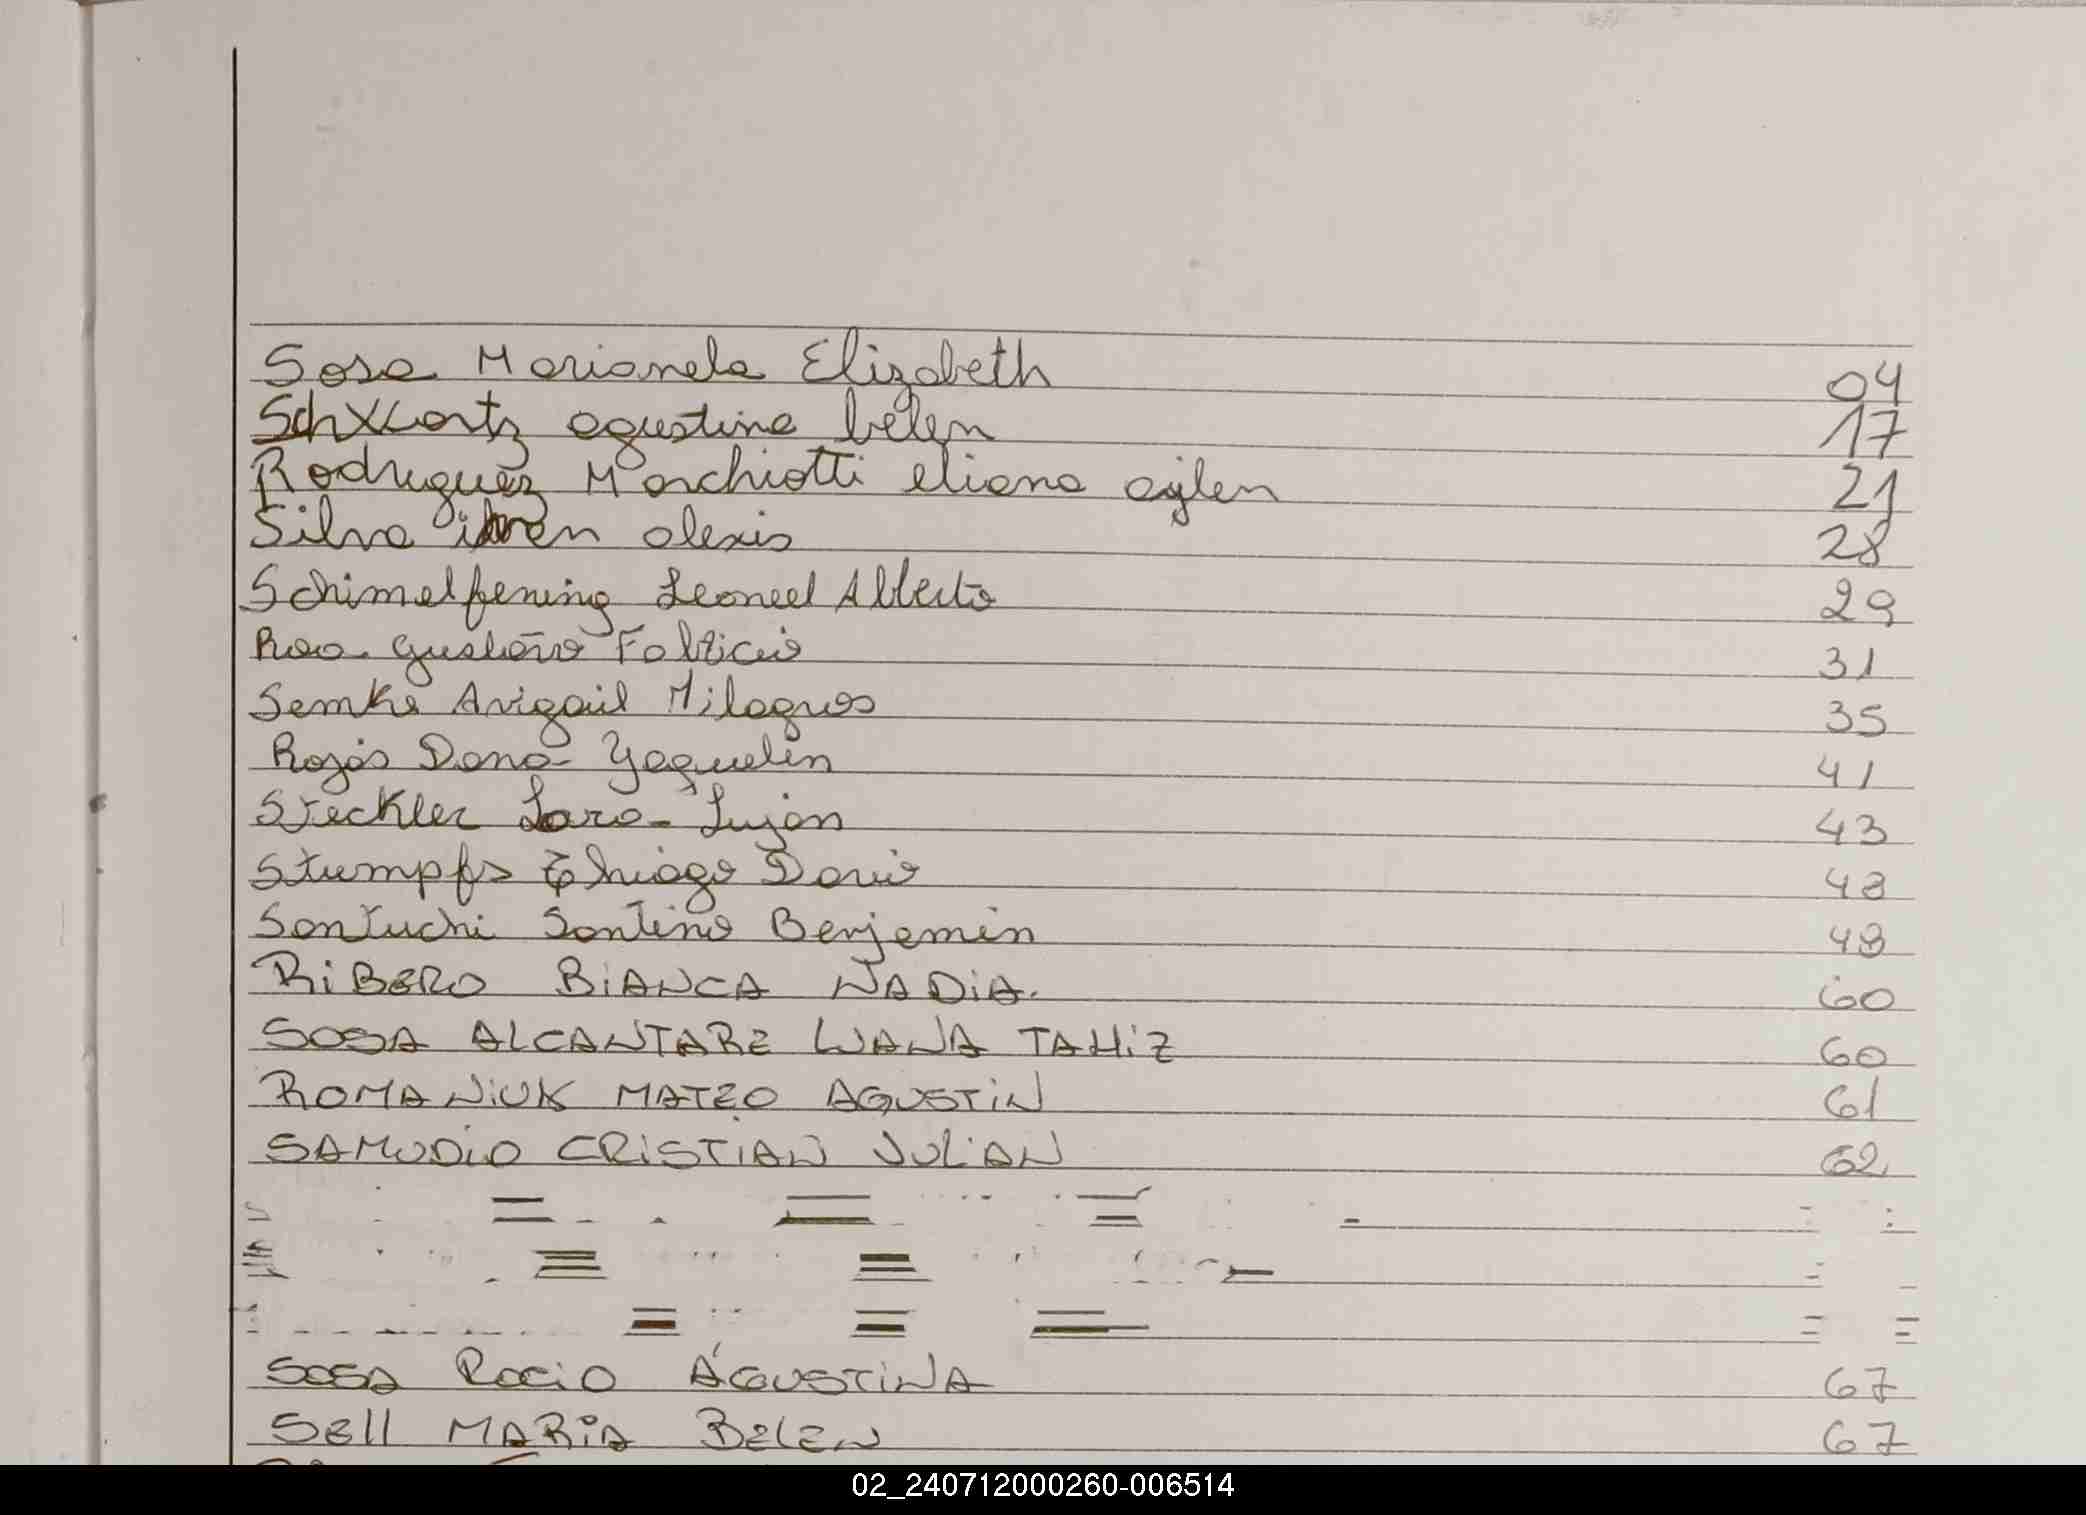 Sosa Marianela Elizabeth 04
Schwartz agustina belen 17
Rodriguez Marchiotti eliana aylen 21
Silva alexis 28
Schimelfening Leonel Alberto 29
Gustavo Fabricio 31
Semke Avigail Milagros 35
Rojas Dana Yaquelin 41
Steckler Lara Lujan 43
Stumpfs Thiago Dario 48
Santuchi Santino Benjamin 49
RIBERO BIANCA NADIA. 60
SOSA ALCANTARE LUANA TAHIZ 60
ROMANIUK MATEO AGUSTIN 61
SAMUDIO CRISTIAN JULIAN 62
SOSA ROCIO AGUSTINA 67
SELL MARIA BELEN 67
02_240712000260-006514